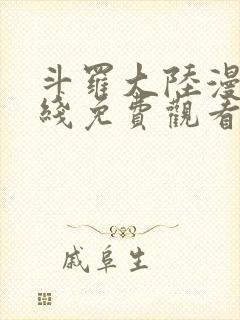 斗羅大陸漫
綫免費觀看
戚阜生